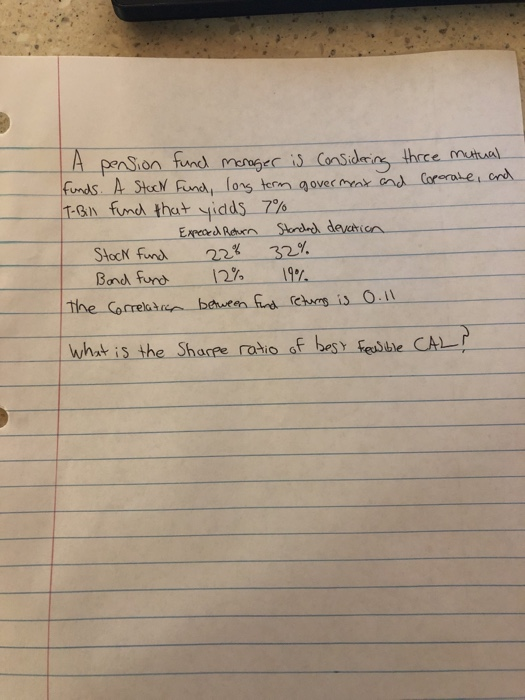 A pension fund manager is Considering three mutual
funds. A Stock Fund, long term goverment and Coporate, and
T-Bill fund that yields 7%
Expected Return Standard devation
Stock Fund 22% 32%
Bond fund 12% 19%
The Correlation between fund returns is 0.11
What is the Sharpe ratio of best feasible CAL?